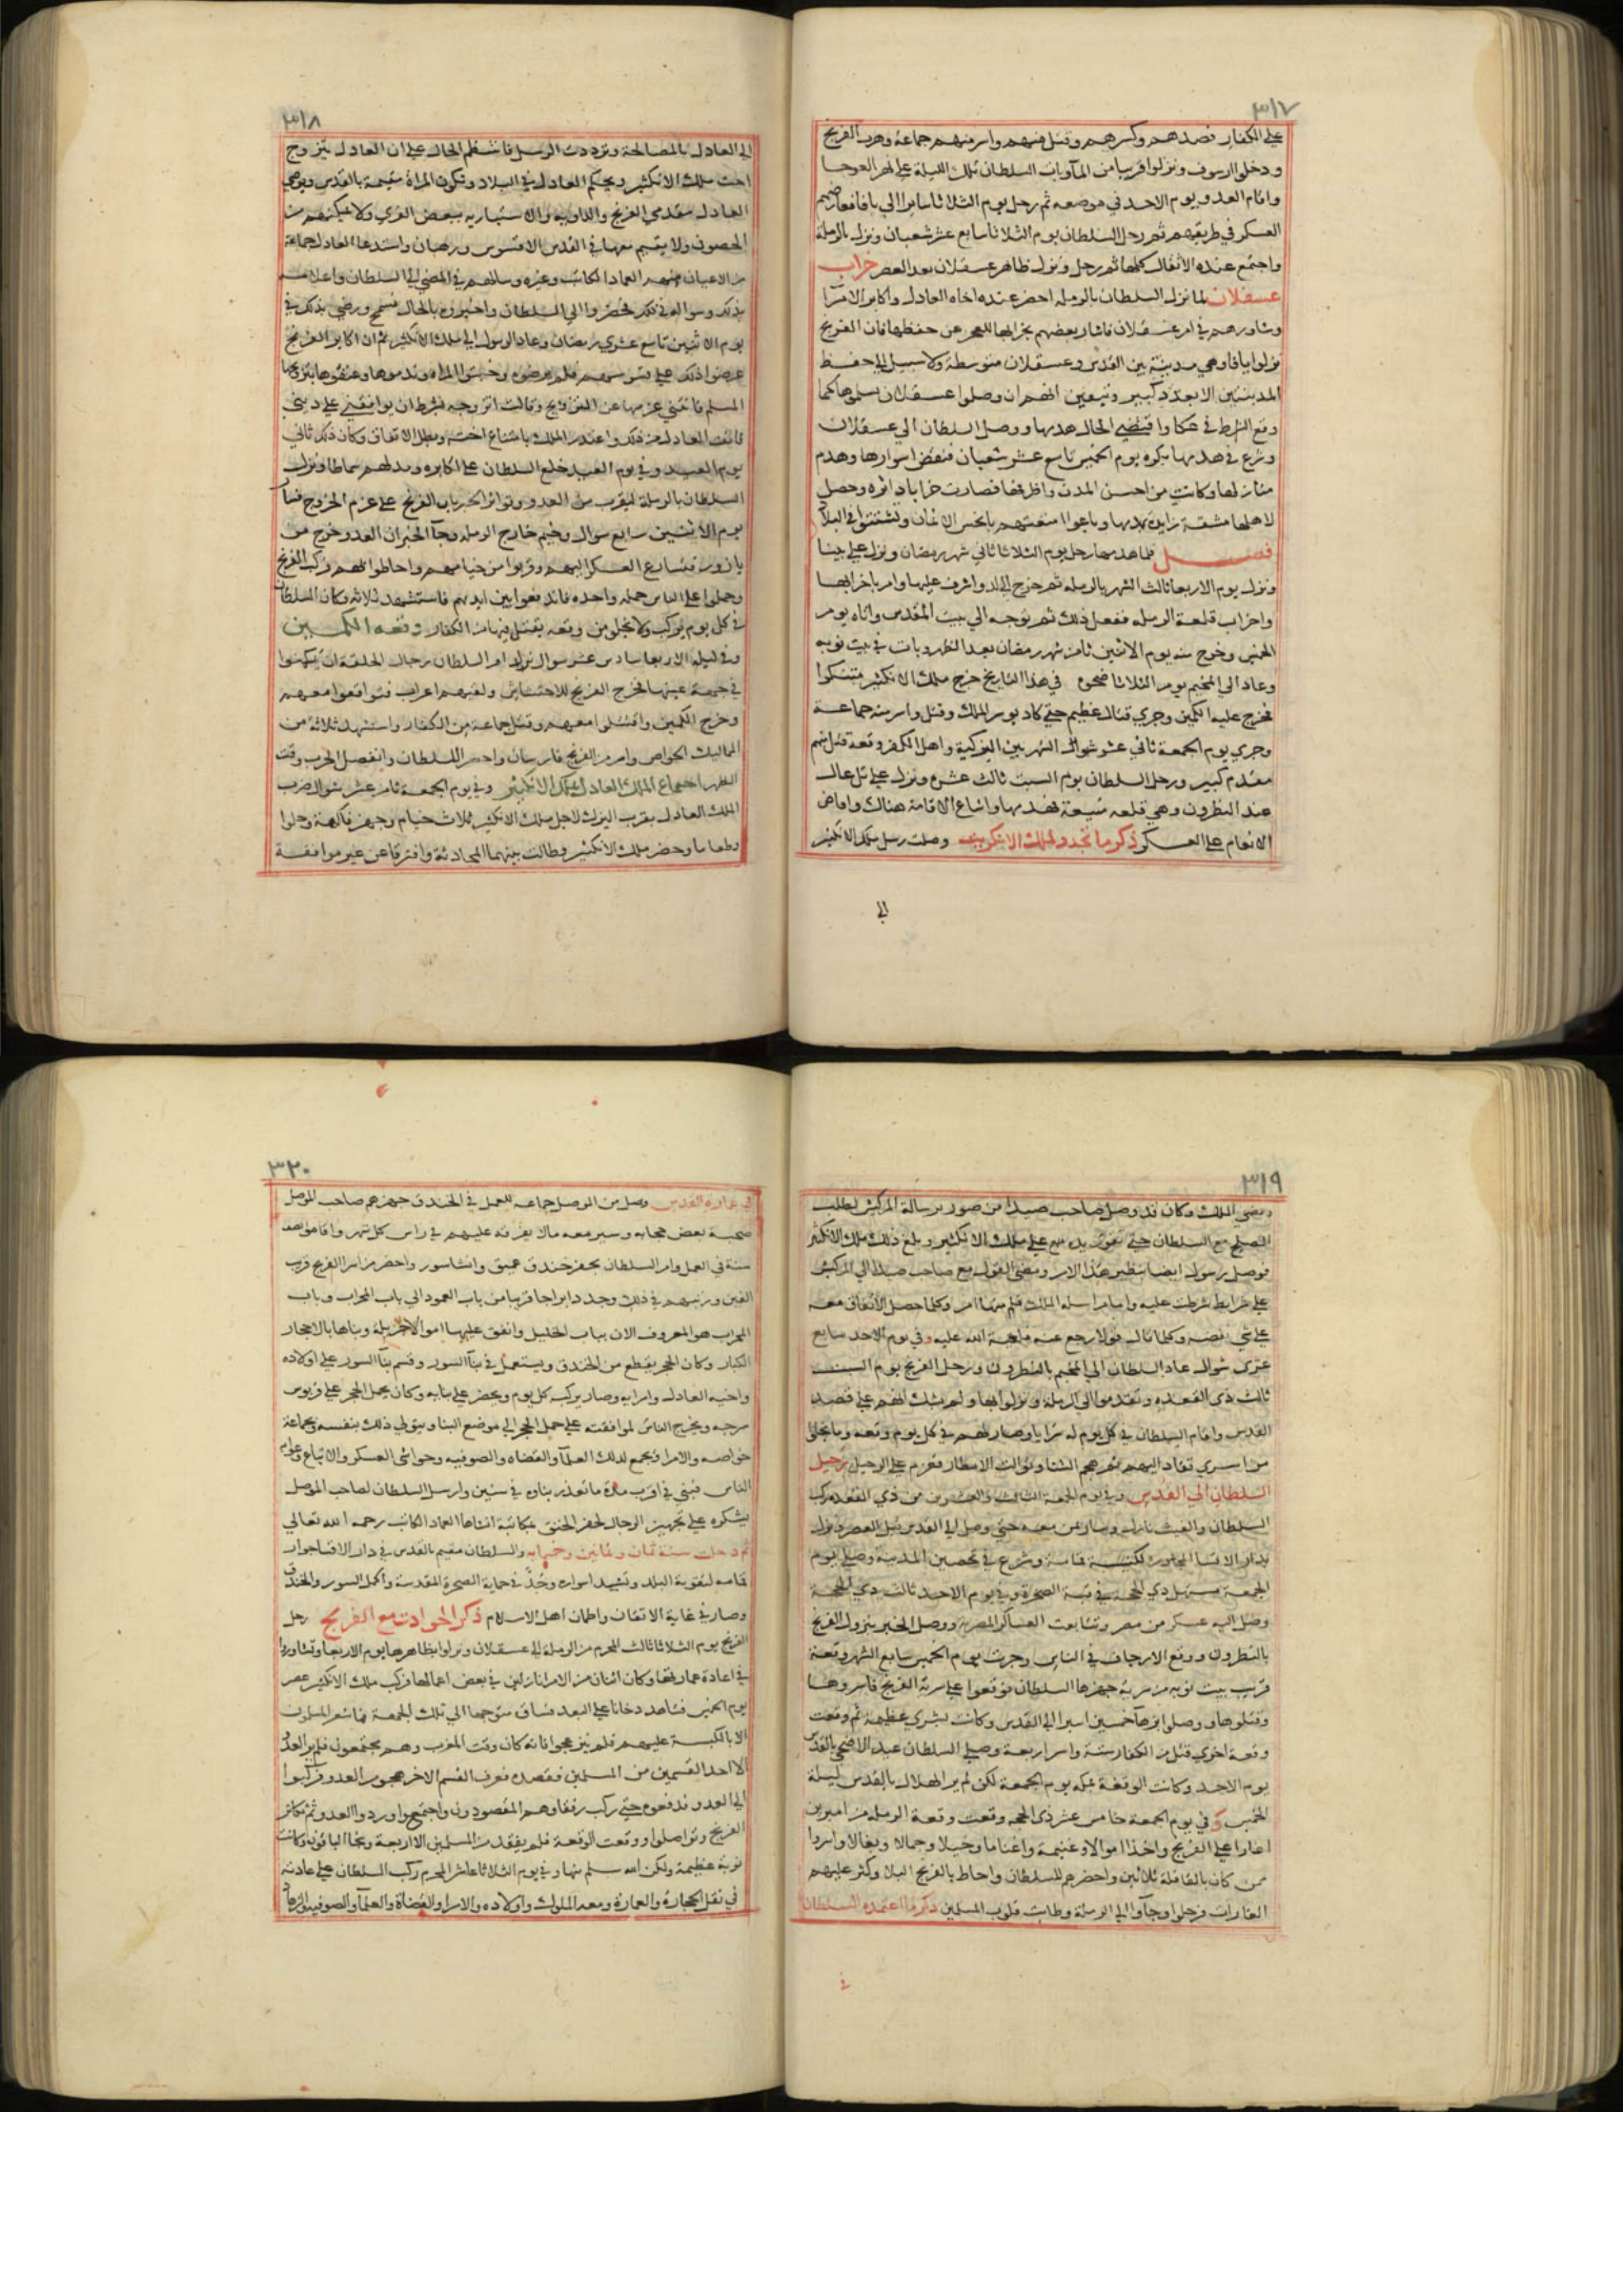 ٣١٧
على الكفار فصدهم وكسرهم وقتل منهم واسر منهم جماعة وهرب الفرنج
ودخلوا ارسوف ونزلوا قريبا من المآوبات السلطان تلك الليلة على نهر العوجا
واقام العدو يوم الاحد في موضعه ثم رحل يوم الثلاثا سايرا الي يافا فعارضهم
العسكر في طريقهم ثم رحل السلطان يوم الثلاثا سابع عشر شعبان ونزل بالرملة
واجتمع عنده الاثقال كلها ثم رحل ونزل ظاهر عسقلان بعد العصر خراب
عسقلان لما نزل السلطان بالرمله احضر عنده اخاه العادل واكابر الامرآ
وشاورهم في امر عسقلان فاشار بعضهم بخرابها للعجز عن حفظها فان الفرنج
نزلوا يافا وهي مدينة بين القدس وعسقلان متوسطة ولا سبيل الي حفظ
المدينتين الا بعدد كبير وتيقين انهم ان وصلوا عسقلان تسلموها كما
وقع الشرط في عكا واقتضى الحال هدمها ووصل السلطان الي عسقلان
وشرع في هدمها بكره يوم الخميس تاسع عشر شعبان فنقض اسوارها وهدم
منازلها وكانت من احسن المدن واظرفها فصارت خرابا داثره وحصل
لاهلها مشقة زايدة بهدمها وباعوا امتعتهم بابخس الاثمان وتشتتوا في البلاد
فصل فلما هدمها رحل يوم الثلاثا ثاني شهر رمضان ونزل على يبنا
ونزل يوم الاربعا ثالث الشهر بالرمله ثم خرج الي لد واشرف عليها وامر باخرابها
واخراب قلعة الرمله ففعل ذلك ثم توجه الي بيت المقدس واتاه يوم
الخميس وخرج منه يوم الاثنين ثامن شهر رمضان بعد الظهر وبات في بيت نوبه
وعاد الي المخيم يوم الثلاثا ضحوه في هذا التاريخ خرج ملك الانكتير متنكرا
فخرج عليه الكمين وجري قتال عظيم حتي كاد يوسر الملك وقتل واسر منه جماعة
وجري يوم الجمعة ثاني عشر شوال الشهر بين اليزكية واهل الكفر وقعة قتل منهم
مقدم كبير ورحل السلطان يوم السبت ثالث عشره ونزل على تل عال
عند النطرون وهي قلعه منيعة فهدمها واشاع الاقامة هناك وافاض
الانعام على العسكر ذكر ما تجدد لملك الانكتير وصلت رسل ملك الانكتير
الي
٣١٨
الي العادل بالمصالحة وترددت الرسل فانتظم الحال على ان العادل يتزوج
اخت ملك الانكتير ويحكم العادل في البلاد وتكون المراة مقيمة بالقدس ويرضي
العادل مقدمي الفرنج والداويه والاسبتاريه ببعض القري ولا يمكنهم من
الحصون ولا يقيم معها في القدس الا قسوس ورهبان واستدعا العادل جماعة
من الاعيان منهم العماد الكاتب وغيره وسالهم في المضي الي السلطان واعلامه
بذلك وسواله في ذلك فحضروا الي السلطان واخبروه بالحال فسمح ورضي بذلك في
يوم الاثنين تاسع عشري رمضان وعاد الرسول الي ملك الانكتير ثم ان اكابر الفرنج
عرضوا ذلك على قسوسهم فلم يرضوه وخشوا المراه وندموها وعنفوها بتزويجها
المسلم فانثني عزمها عن التزويج وقالت اتزوجه بشرط ان يوافقني على ديني
فانف العادل من ذلك واعتذر الملك بامتناع اخته وبطل الاتفاق وكان ذلك ثاني
يوم العيد وفي يوم العيد خلع السلطان على اكابره ومد لهم سماطا ونزل
السلطان بالرملة ليقرب من العدو وتواتر الخبر بان الفرنج على عزم الخروج فسار
يوم الاثنين سابع شوال وخيم خارج الرمله وجآ الخبر ان العدو خرج من
يازور فتسارع العسكر اليهم وقربوا من خيامهم واحاطوا بهم فركب الفرنج
وحملوا على الناس حمله واحده فاندفعوا بين ايديهم فاستشهد ثلاثه وكان السلطان
في كل يوم يركب ولا يخلو من وقعه يقتل فيها من الكفار وقعه الكمين
وفي ليله الاربعا سادس عشر شوال نزل امر السلطان رجال الحلقة ان يكمنوا
في جهة عينها فخرج الفرنج للاحتشاش ولقيهم اعراب فتواقعوا معهم
وخرج الكمين واقتتلوا معهم وقتل جماعة من الكفار واستشهد ثلاثة من
المماليك الخواص واسر من الفرنج فارسان واحضرا للسلطان وانفصل الحرب وقت
الظهر اجتماع الملك العادل بملك الانكتير وفي يوم الجمعة ثامن عشر شوال ضرب
الملك العادل بقرب اليزك لاجل ملك الانكتير ثلاث خيام وجهز فاكهة وحلوا
وطعاما وحضر ملك الانكتير وطالت بينهما المحادثة وافترقا عن غير موافقة
٣١٩
ومضي الملك وكان قد وصل صاحب صيدا من صور برسالة المركيس لطلب
الصلح مع السلطان حتي يقوي يده على ملك الانكتير وبلغ ذلك ملك الانكتير
فوصل رسوله ايضا بنظير هذا الامر ومضي القول مع صاحب صيدا الي المركيس
على شرايط شرطت عليه واما مراسلة الملك فلم يتم لها امر وكلما حصل الاتفاق معه
على شي نقضه وكلما قال قولا رجع عنه فلعنة الله عليه وفي يوم الاحد سابع
عشري شوال عاد السلطان الي المخيم بالنطرون ورحل الفرنج يوم السبت
ثالث ذي القعده وتقدموا الي الرملة ونزلوا بها ولم يشك انهم على قصد
القدس واقام السلطان في كل يوم له سرايا وصار لهم في كل يوم وقعه وما يخلوا
من اسري تقاد اليهم ثم هجم الشتا وتوالت الامطار فعزم على الرحيل رحيل
السلطان الي القدس وفي يوم الجمعة الثالث والعشرين من ذي القعده ركب
السلطان والغيث نازل وسار من معه حتي وصل الي القدس قبل العصر ونزل
بدار الاقسا المجاوره لكنيسة قمامة وشرع في تحصين المدينة وصلي يوم
الجمعة مستهل ذي الحجة في قبة الصخرة وفي يوم الاحد ثالث ذي الحجة
وصل اليه عسكر من مصر وتتابعت العساكر المصريه ووصل الخبر بنزول الفرنج
بالنطرون ووقع الارجاف في الناس وجرت يوم الخميس سابع الشهر وقعة
قريب بيت نوبه من سرية جهزها السلطان فوقعوا على سرية الفرنج فاسروها
وقتلوها ووصلوا بزهآ خمسين اسيرا الي القدس وكانت بشري عظيمة ثم وقعت
وقعة اخري قتل من الكفار ستة واسر اربعة وصلي السلطان عيد الاضحي بالقدس
يوم الاحد وكانت الوقفة بمكه يوم الجمعة لكن لم ير الهلال بالقدس ليلة
الخميس وفي يوم الجمعة خامس عشر ذي الحجه وقعت وقعة الرملة من اميرين
اغارا على الفرنج واخذا اموالا وغنيمة واغناما وخيلا وجمالا وبغالا واسرا
ممن كان بالقافلة ثلاثين واحضرهم للسلطان واحاط بالفرنج البلا وكثر عليهم
الغارات فرحلوا وجآوا الي الرملة وطابت قلوب المسلمين ذكر ما اعتمده السلطان
في
٣٢٠
في عمارة القدس وصل من الموصل جماعه للعمل في الخندق جهزهم صاحب الموصل
صحبة بعض حجابه وسير معه مالا يفرقه عليهم في راس كل شهر واقاموا نصف
سنة في العمل وامر السلطان بحفر خندق عميق وانشا سور واحضر من اسرا الفرنج قريب
الفين ورتبهم في ذلك وجدد ابراجا قريبا من باب العمود الي باب المحراب وباب
المحراب هو المعروف الان بباب الخليل وانفق عليها اموالا جزيلة وبناها بالاحجار
الكبار وكان الحجر يقطع من الخندق ويستعمل في بنآ السور وقسم بنآ السور على اولاده
واخيه العادل وامرايه وصار يركب كل يوم ويحضر على بنايه وكان يحمل الحجر على قربوس
سرجه ويخرج الناس لموافقته على حمل الحجر الي موضع البنا ويتولي ذلك بنفسه وجماعة
خواصه والامرا ويجمع لذلك العلمآ والقضاه والصوفيه وحواشي العسكر والاتباع وعوام
الناس فبني في اقرب مدة ما تعذر بناوه في سنين وارسل السلطان لصاحب الموصل
يشكره على تجهيز الرجال لحفر الخندق بمكاتبة انشاها العماد الكاتب رحمه الله تعالي
ثم دخلت سنة ثمان وثمانين وخمسمايه والسلطان مقيم بالقدس في دار الاقسا جوار
قمامه لتقوية البلد وتشييد اسواره وجد في حماية الصخرة المقدسة واكمل السور والخندق
وصار في غاية الاتقان واطمان اهل الاسلام ذكر الحوادث مع الفرنج رحل
الفرنج يوم الثلاثا ثالث المحرم من الرملة الي عسقلان ونزلوا بظاهرها يوم الاربعا وتشاوروا
في اعادة عمارتها وكان اثنان من الامرا نازلين في بعض اعمالها فركب ملك الانكتير عصر
يوم الخميس فشاهد دخانا على البعد فساق متوجها الي تلك الجهة فما شعر المسلمون
الا بالكبسة عليهم فلم ينزعجوا فانه كان وقت المغرب وهم مجتمعون فلم ير العدو
الا احد القسمين من المسلمين فقصده فعرف القسم الاخر هجوم العدو فركبوا
الي العدو فدفعوه حتي ركب رفقاوهم المقصودون واجتمعوا وردوا العدو ثم تكاثر
الفرنج وتواصلوا ووقعت الوقعة فلم يفقد من المسلمين الا اربعة ونجا الباقون وكانت
نوبة عظيمة ولكن الله سلم منها وفي يوم الثلاثا عاشر المحرم ركب السلطان على عادته
في نقل الحجارة والعمارة ومعه الملوك واولاده والامرا والقضاة والعلمآ والصوفيه والزهاد